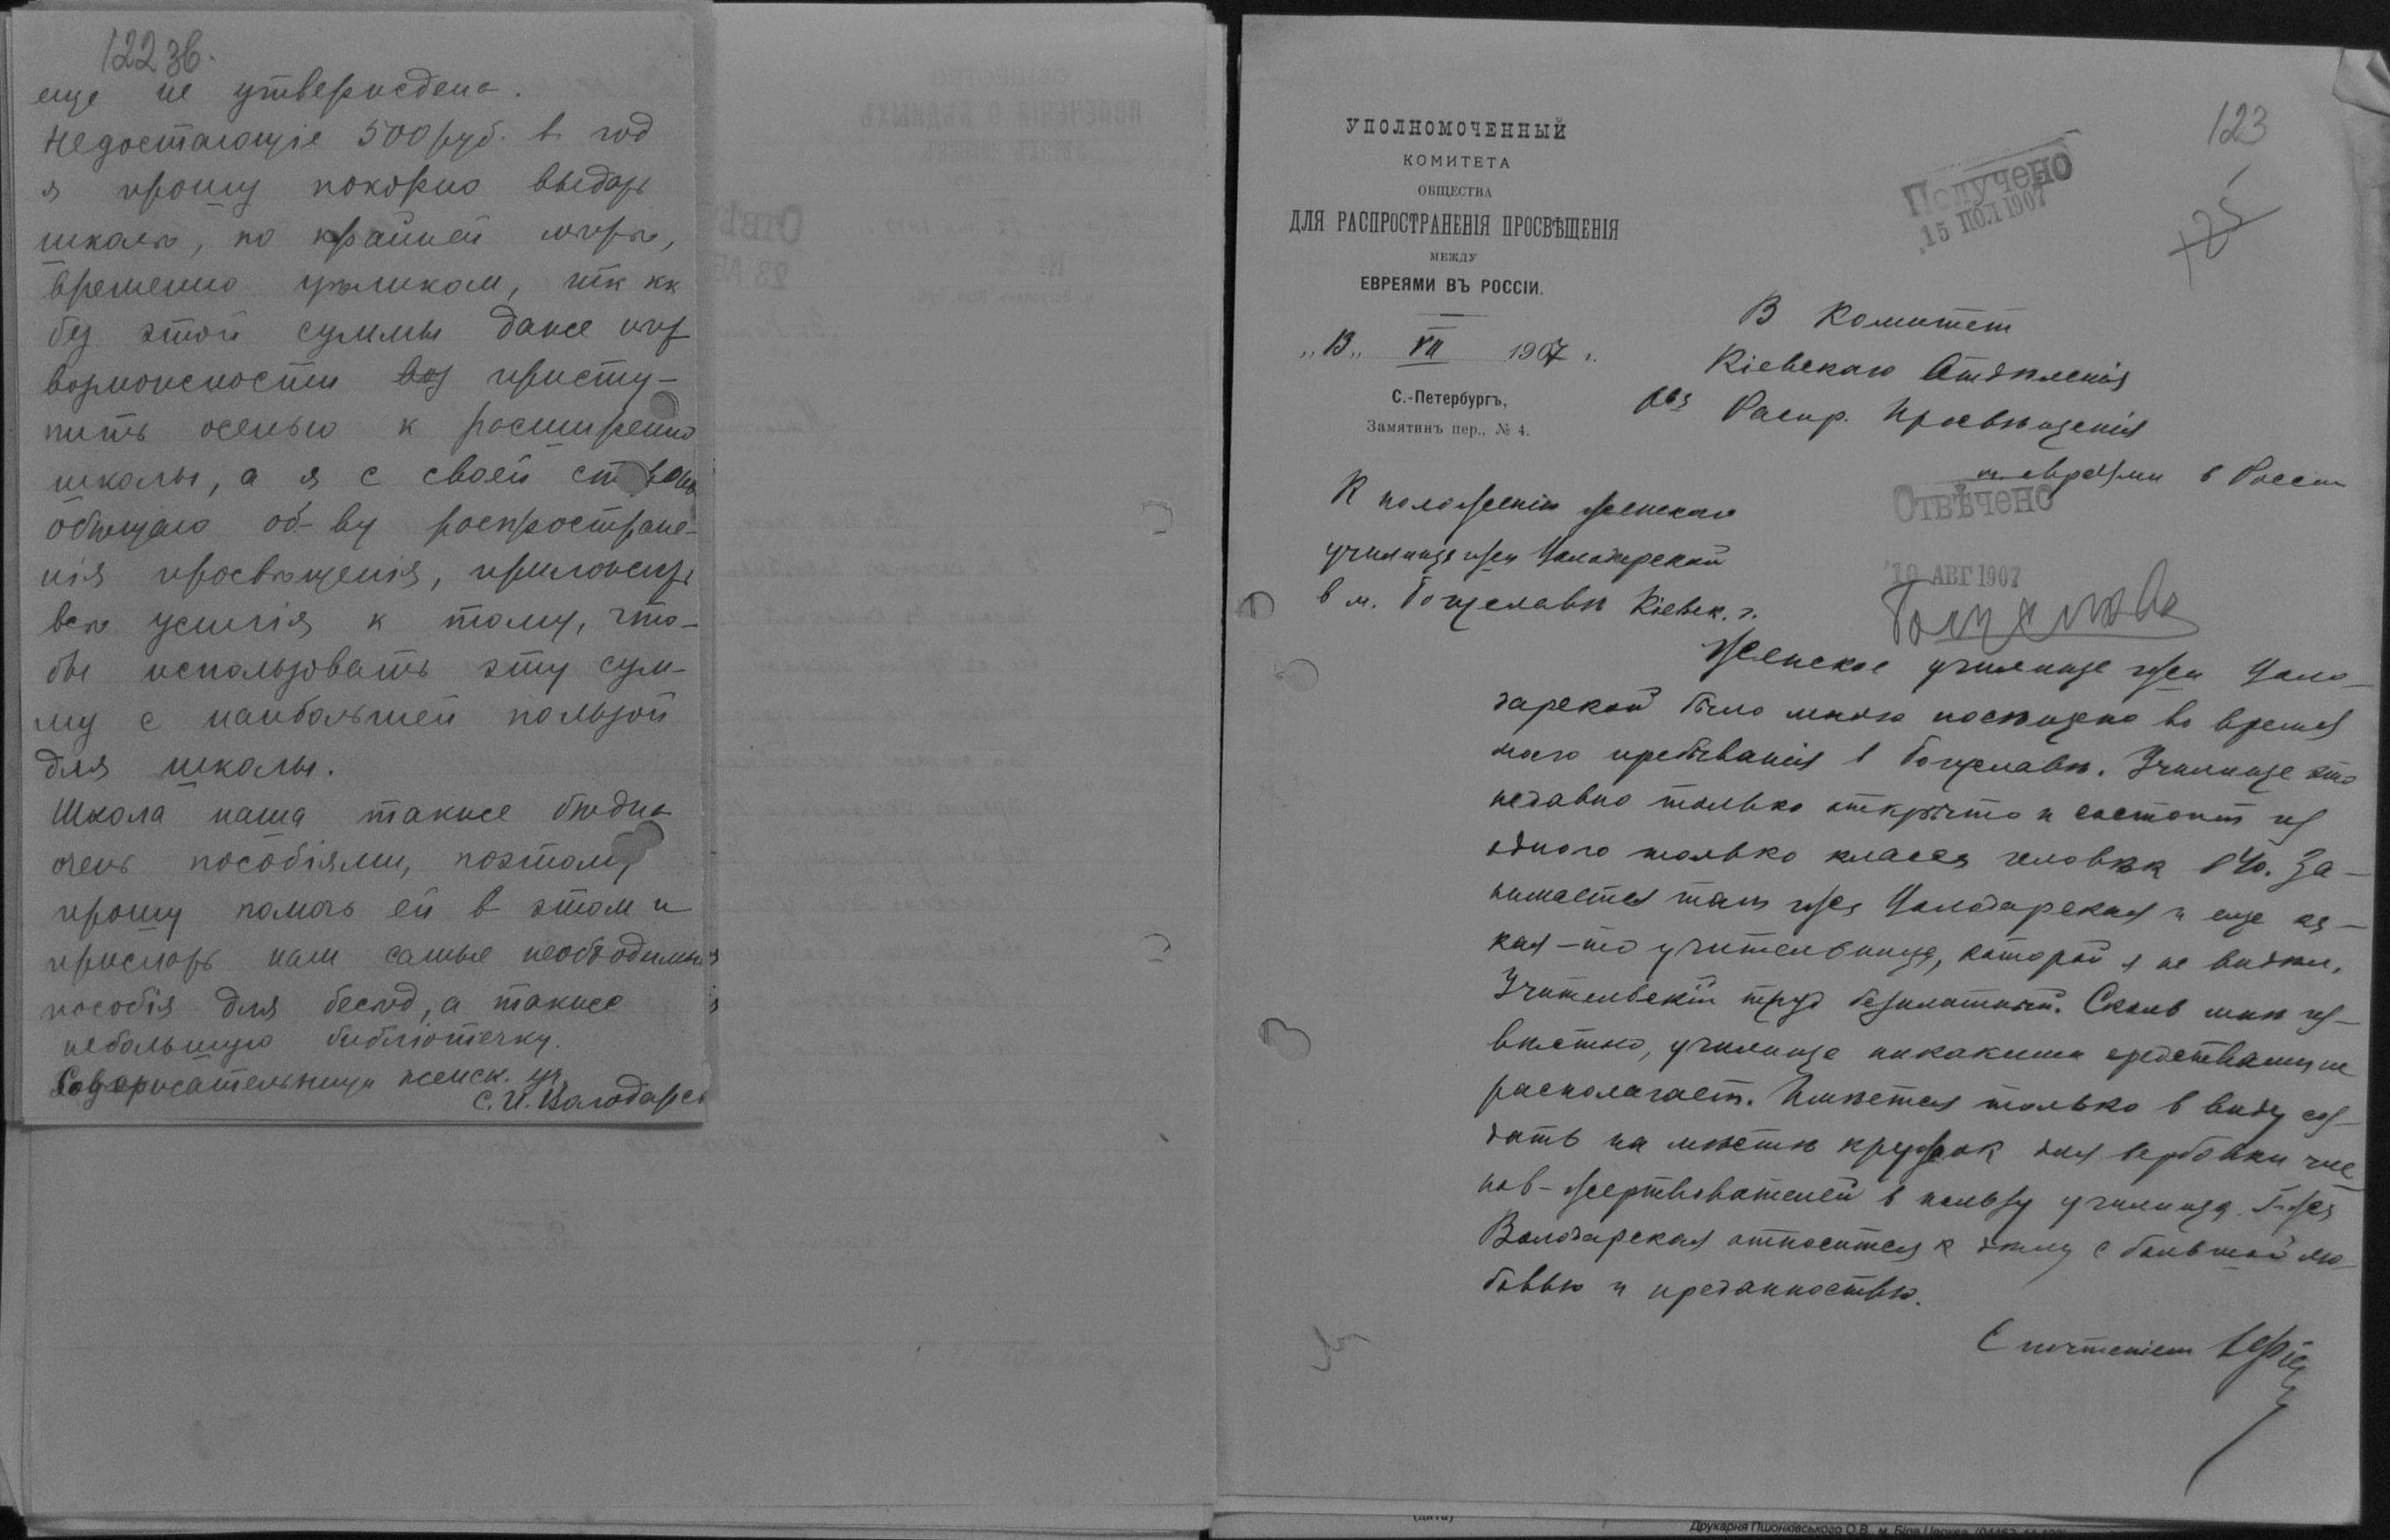 122 зв.
еще не утверждена.
Недостающіе 500 руб. в год
я прошу покорно выдать
школѣ, по крайней мѣрѣ,
временно цѣликом, тк кк
без этой суммы даже нѣт
возможности присту-
пить осенью к расширенію
школы, а я с своей стороны
обѣщаю об-ву распростране-
нія просвѣщенія, приложить
всѣ усилія к тому, что-
бы использовать эту сум-
му с наибольшей пользой
для школы.
Школа наша также бѣдна
очень пособіями, поэтому
прошу помочь ей в этом и
прислать нам самые необходимыя
пособія для бесѣд, а также
небольшую библіотечку.
Содержательница женск. уч.
С. И. Володарск
УПОЛНОМОЧЕННЫЙ
КОМИТЕТА
ОБЩЕСТВА
ДЛЯ РАСПРОСТРАНЕНІЯ ПРОСВѢЩЕНІЯ
МЕЖДУ
ЕВРЕЯМИ ВЪ РОССІИ.
„13„ VII 1907 г.
С.-Петербургъ,
Замятинъ пер., № 4.
123
+25
Получено
15 ІЮЛ 1907
В Комитет
Кіевскаго Отдѣленія
Об-ва Распр. Просвѣщенія
м. евреями в Россіи
Отвѣчено
10 АВГ 1907
Богуслав
К положенію женскаго
училища г-жи Володарской
в м. Богуславѣ Кіевск. г.
Женское училище г-жи Воло-
дарской было мною посѣщено во время
моего пребыванія в Богуславѣ. Училище это
недавно только открыто и состоит из
одного только класса человѣк в 40. За-
нимается там г-жа Володарская и еще ка-
кая-то учительница, которой я не видѣл.
Учительскій труд безплатный. Сколь мнѣ из-
вѣстно, училище никакими средствами не
располагает. Имѣется только в виду соз-
дать на мѣстѣ кружок для вербовки чле-
нов-жертвователей в пользу училища. Г-жа
Володарская относится к дѣлу с большой лю-
бовью и преданностью.
С почтеніем
(дата)
Друкарня Пшонківського О.В., м. Біла Церква,